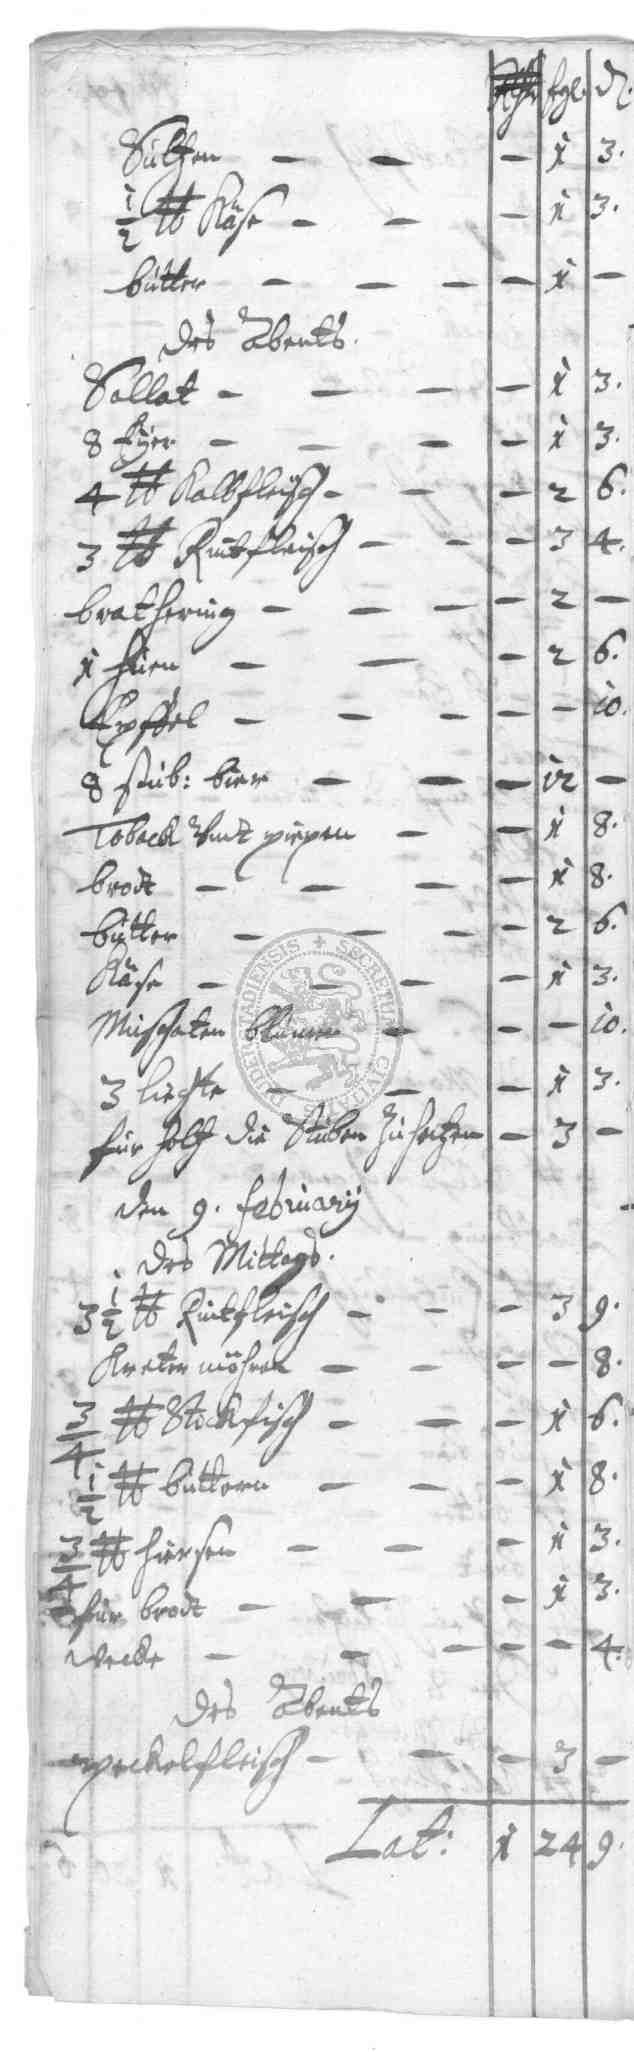 Rthr fgl. d.
Sültzen — — — 1 3.
1/2 ℔ Käse — — — 1 3.
butter — — — — 1 —
des Abents.
Sallat — — — — 1 3.
8 Eyer — — — — 1 3.
4 ℔ Kalbfleisch — — — 2 6.
3 ℔ Rintfleisch — — — 3 4.
brathering — — — — 2 —
1 Huen — — — 2 6.
Epffel — — — — — 10.
8 stüb: bier — — — 12 —
Toback Vndt piepen — — 1 8.
brodt — — — — 1 8.
butter — — — — 2 6.
Käse — — — — 1 3.
Muschaten blumen — — — 10.
3 liechte — — — 1 3.
für holtz die Stuben Zu heitzen — 3 —
den 9. february
des Mittags.
3 1/2 ℔ Rintfleisch — — — 3 9.
möhren — — — — 8.
3/4 ℔ Stockfisch — — — 1 6.
1/2 ℔ buttern — — — 1 8.
3/4 ℔ hiersen — — — 1 3.
für brodt — — — 1 3.
wecke — — — — — 4.
des Abents
peckelfleisch — — — 3 —
Lat: 1 24 9.
SECRETUM CIVITATIS DUDERSTADIENSIS